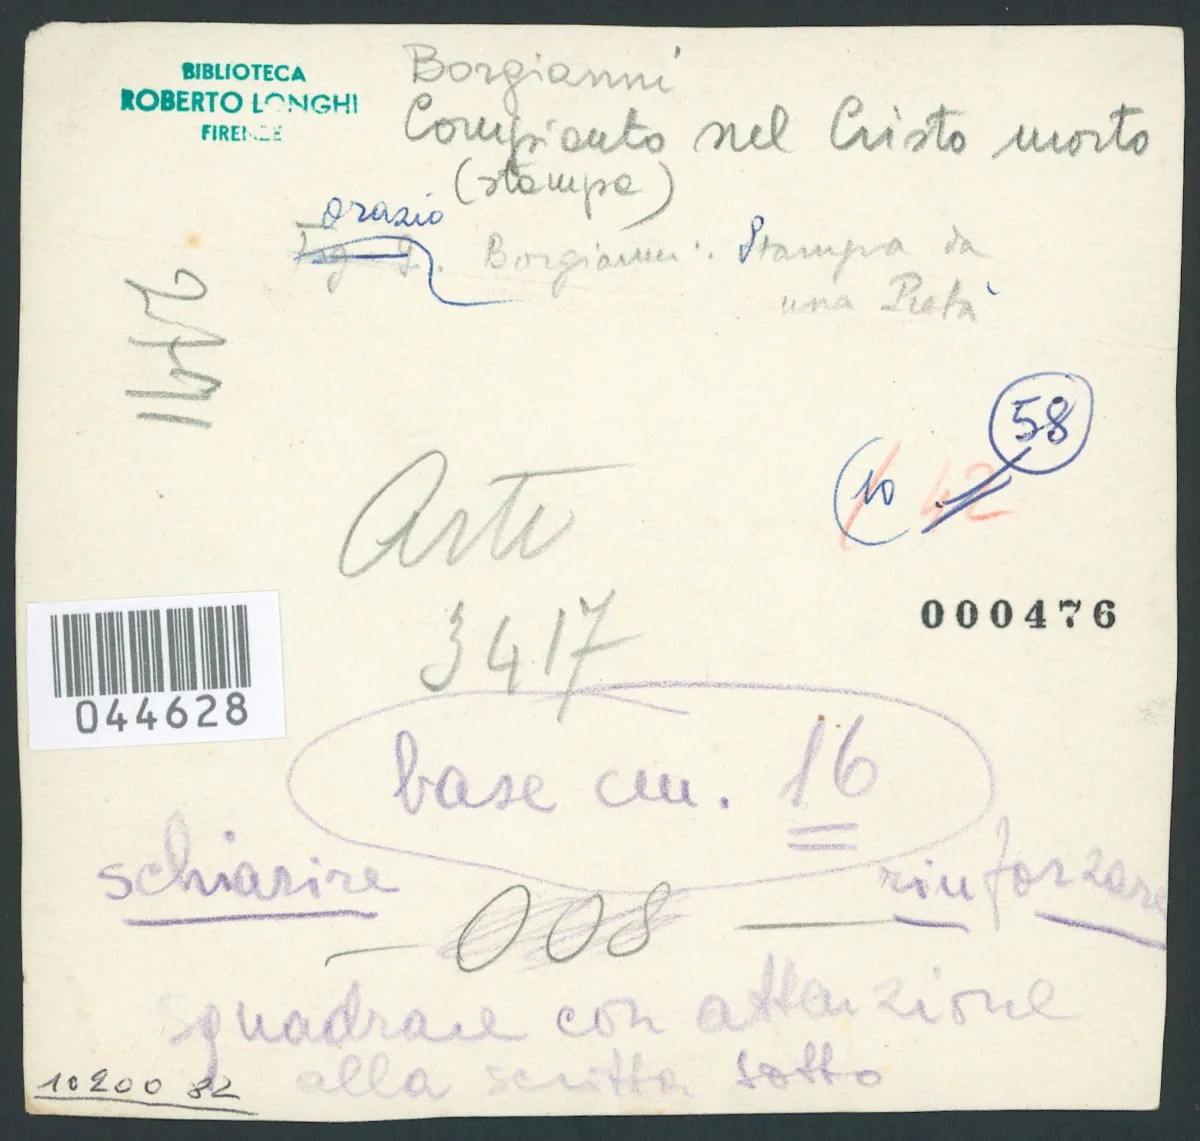 BIBLIOTECA
ROBERTO LONGHI
FIRENZE
Borgianni
Compianto nel Cristo morto
(stampa)
orazio
Fig. Borgianni. Stampa da
una Pietà
58
10 42
Arte
3417
000476
044628
base cm. 16
schiarire
rinforzare
008
squadrare con attenzione
alla scritta sotto
10200 82